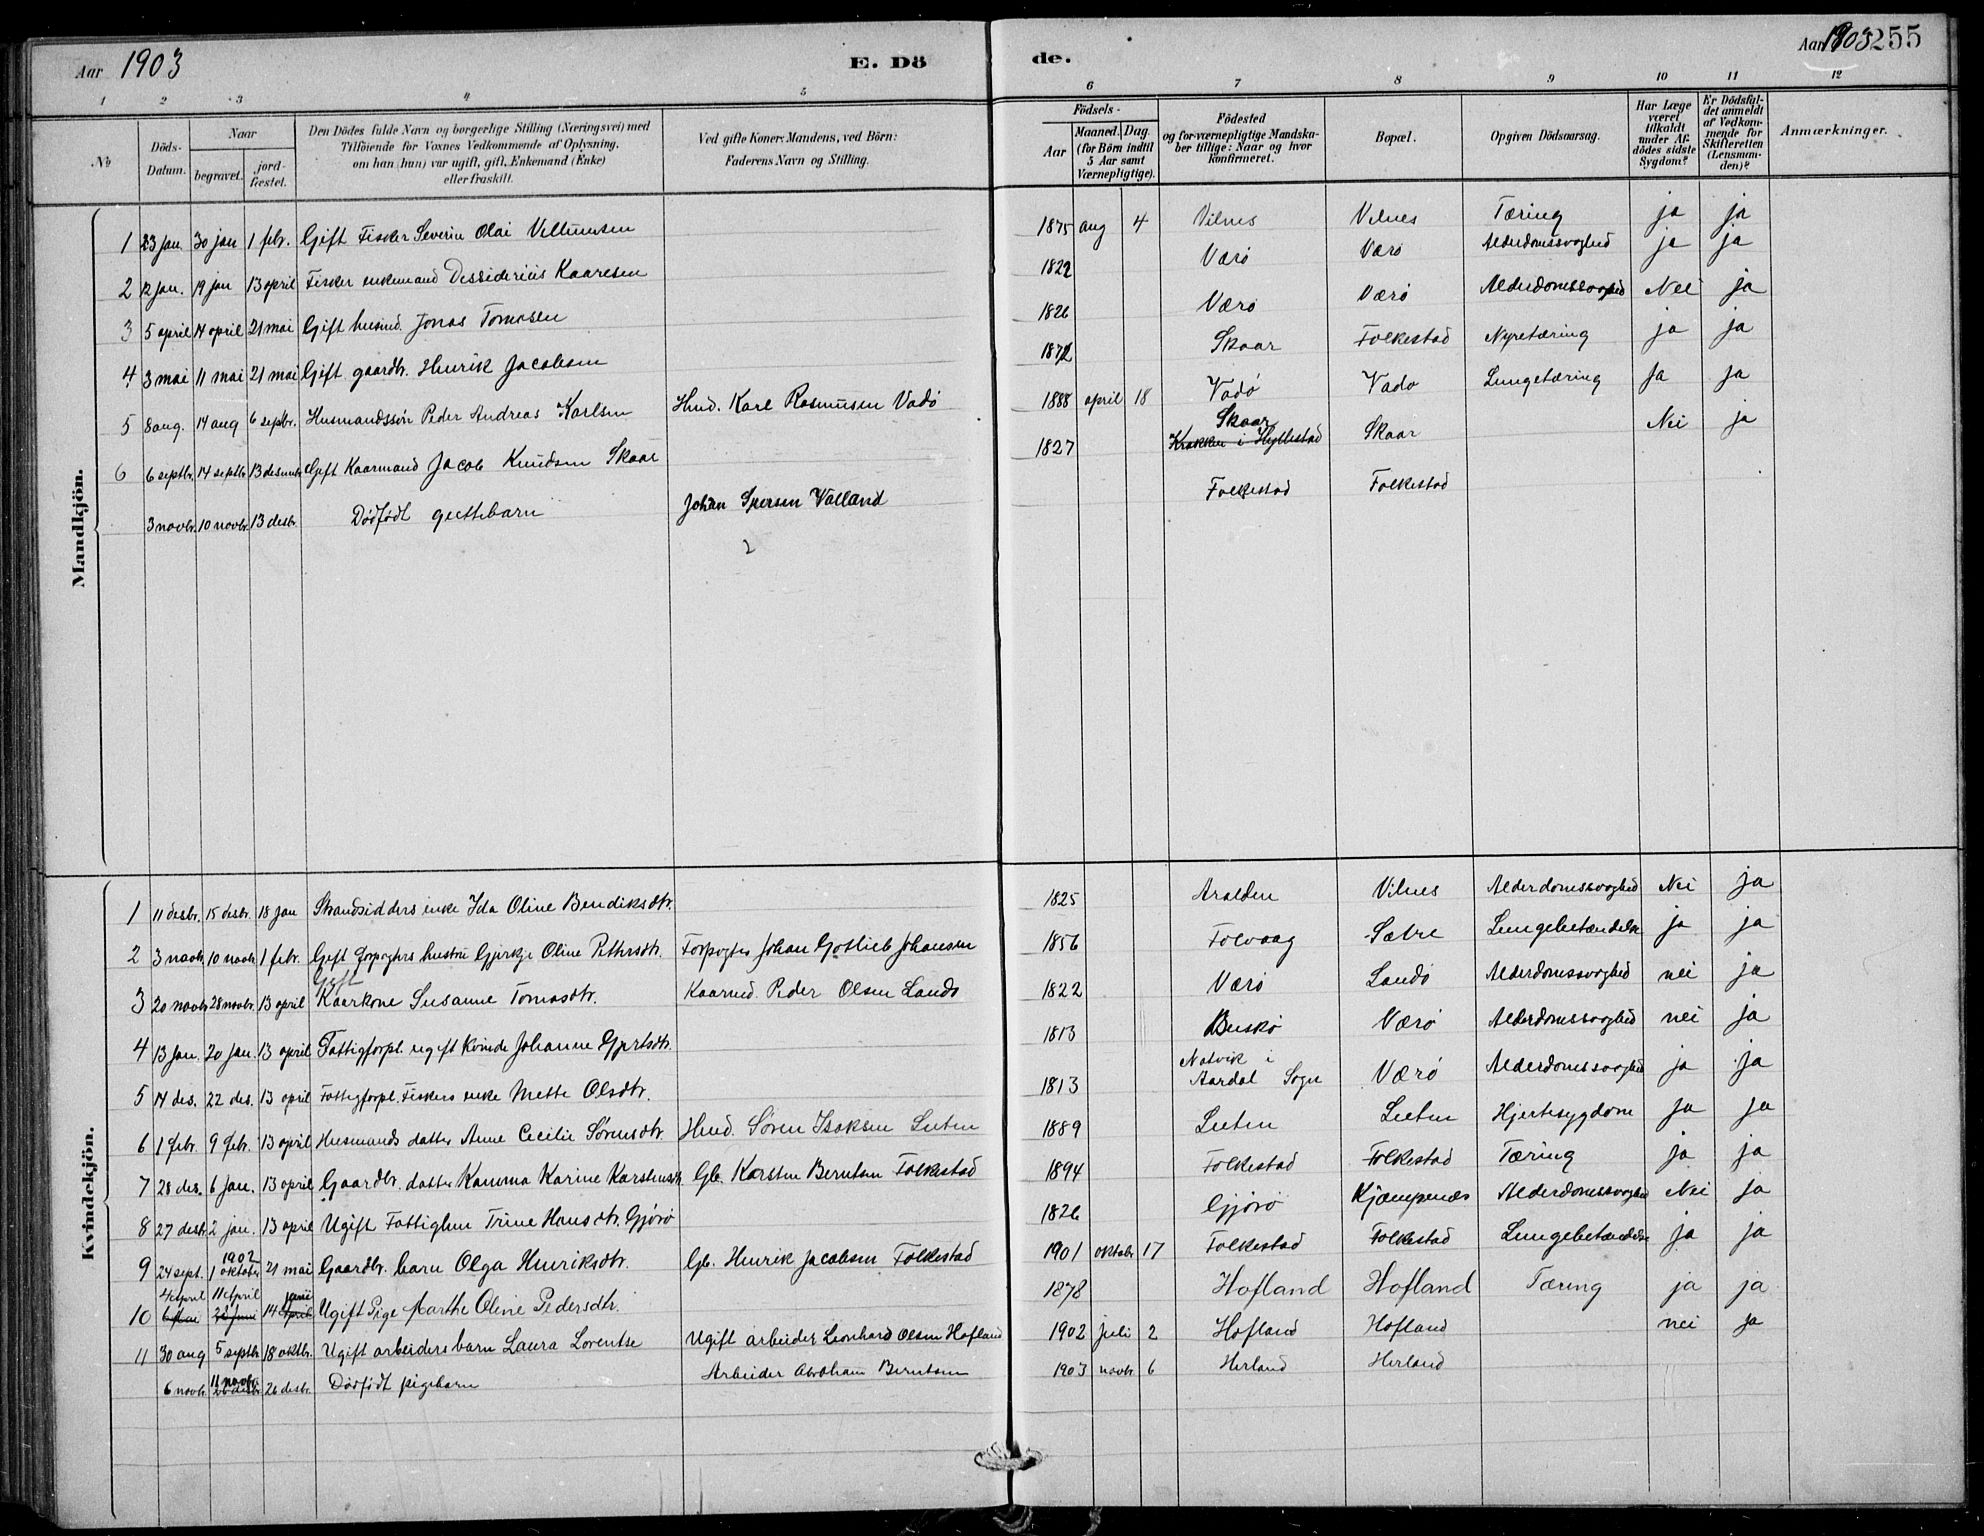 Aar 1903 E. Dö de. Aar 1903 255
1 2 3 4 5 6 7 8 9 10 11 12
No
Döds-Datum.
Naar begravet. jordfæstet.
Den Dödes fulde Navn og borgerlige Stilling (Næringsvei) med Tilföiende for Voxnes Vedkommende af Oplysning, om han (hun) var ugift, gift, Enkemand (Enke) eller fraskilt.
Ved gifte Koner: Mandens, ved Börn: Faderens Navn og Stilling.
Födsels- Aar Maaned. Dag. (for Börn indtil 5 Aar samt Værnepligtige).
Födested og for værnepligtige Mandskaber tillige: Naar og hvor Konfirmeret.
Bopæl.
Opgiven Dödsaarsag.
Har Læge været tilkaldt under Afdödes sidste Sygdom?
Er Dödsfaldet anmeldt af Vedkommende for Skifteretten (Lensmanden)?
Anmærkninger.
Mandkjön.
1 23 jan. 30 jan 1 febr. Gift Fisker Severin Olai Villumsen 1875 aug 4 Vilnes Vilnes Tæring ja ja
2 12 jan. 19 jan 13 april Fisker enkemand Dessiderius Kaaresen 1822 Værö Værö Alderdomssvaghed ja ja
3 5 april 14 april 21 mai Gift husmd. Jonas Tomasen 1826 Værö Værö Alderdomssvaghed Nei ja
4 3 mai 11 mai 21 mai Gift gaardbr. Henrik Jacobsen 1872 Skaar Folkestad Nyretæring ja ja
5 8 aug. 14 aug 6 septbr. Husmandssön Peder Andreas Karlsen Hmd. Karl Rasmusen Vadö 1888 april 18 Vadö Vadö Lungetæring Ja ja
6 6 septbr. 14 septbr 13 desembr Gift Kaarmand Jacob Knudsen Skaar 1827 Skaar Krakken i Hyllestad Skaar Nei ja
3 novbr. 10 novbr. 13 desbr. Dödfödt guttebarn Johan Iversen Valland Folkestad Folkestad
2
Kvindekjön.
1 11 desbr. 15 desbr. 18 jan Strandsidders enke Ida Oline Bendiksdtr. 1825 Aralden Vilnes Alderdomssvaghed Nei ja
2 3 novbr 10 novbr 1 febr. Gift forpagters hustru Gjertje Oline Pettersdtr. Forpagter Johan Gotlieb Johansen 1856 Folvaag Sætre Lungebetændelse ja ja
3 20 novbr 28 novbr. 13 april Gift Kaarkone Susanne Tomasdtr. Kaarmd. Peder Olsen Landö 1822 Værö Landö Alderdomssvaghed nei ja
4 13 jan. 20 jan. 13 april Fattigforpl. ugift kvinde Johanne Gjertsdtr. 1813 Buskö Værö Alderdomssvaghed nei ja
5 14 des. 22 des. 13 april Fattigforpl. Fiskers enke Mette Olsdtr. 1813 Natvik i Aardal Sogn Værö Alderdomssvaghed ja ja
6 1 febr. 9 febr. 13 april Husmands datter Anne Cecilie Sörensdtr. Hmd. Sören Isaksen Lieten 1889 Lieten Lieten Hjertesygdom Ja ja
7 28 des. 6 jan. 13 april Gaardbr. datter Kamma Karine Karstensdtr. Gb. Karsten Berntsen Folkestad 1894 Folkestad Folkestad Tæring ja ja
8 27 desbr 2 jan. 13 april Ugift Fattiglem Trine Hansdtr. Gjörö 1826 Gjörö Kjæmpenæs Alderdomssvaghed Nei ja
9 24 sept. 1902 1 oktober 21 mai Gaardbr. barn Olga Henriksdtr. Gb. Henrik Jacobsen Folkestad 1901 oktobr 17 Folkestad Folkestad Lungebetændelse ja ja
10 4 april 11 april 14 juni april Ugift Pige Marthe Oline Pedersdtr. 1878 Hofland Hofland Tæring ja ja
11 30 aug 5 septbr 18 oktbr. Ugift arbeiders barn Laura Lorentse Ugift arbeider Leonhard Olsen Hofland 1902 juli 2 Hofland Hofland nei ja
6 novbr 11 novbr. 26 desbr. Dödfödt pigebarn Arbeider Abraham Berntsen 1903 novbr 6 Herland Herland